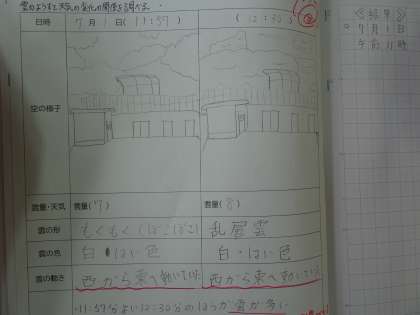 雲のようすと天気の変化の関係を調べる。
日時
7月1日(11:57)
(12:30)
空の様子
雲量・天気
雲量(7)
雲量(8)
雲の形
もくもく(ぼこぼこ)
乱層雲
雲の色
白・はい色
白・はい色
雲の動き
西から東へ動いていた
西から東へ動いていた
・11:57分より12:30分のほうが雲が多い
7月1日
午前11時